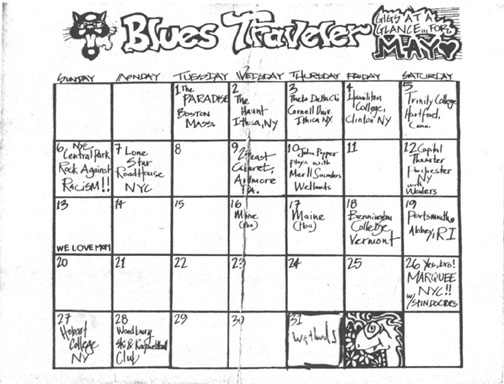 Blues Traveler
GIGS AT A
GLANCE... FOR
MAY
SUNDAY
MONDAY
TUESDAY
WEDSDAY
THURSDAY
FRIDAY
SATURDAY
1 The
PARADISE
BOSTON
MASS
2
The
Haunt
Ithica, NY
3
Theta Delta Chi
Cornell Univ
Ithica NY
4
Hamilton
College,
Clinton NY
5
Trinity College
Hartford,
Conn.
6 NYC
Central Park
Rock Against
RACISM!!
7 Lone
Star
Roadhouse
NYC
8
9
Cabaret,
Ardmore
PA.
10 John Popper
plays with
Merl Saunders
Wetlands
11
12 Capitol
Theater
NY
with
13
WE LOVE MOM
14
15
16
Maine
17
Maine
18
Bennington
College
Vermont
19
Portsmouth
Abbey, RI
20
21
22
23
24
25
26 Yes, bro!
MARQUEE
NYC!!
w/SPINDOCTORS
27
Hobart
College
NY
28
Woodbury
Ski & Racquetball
Club
29
30
31
Wetlands